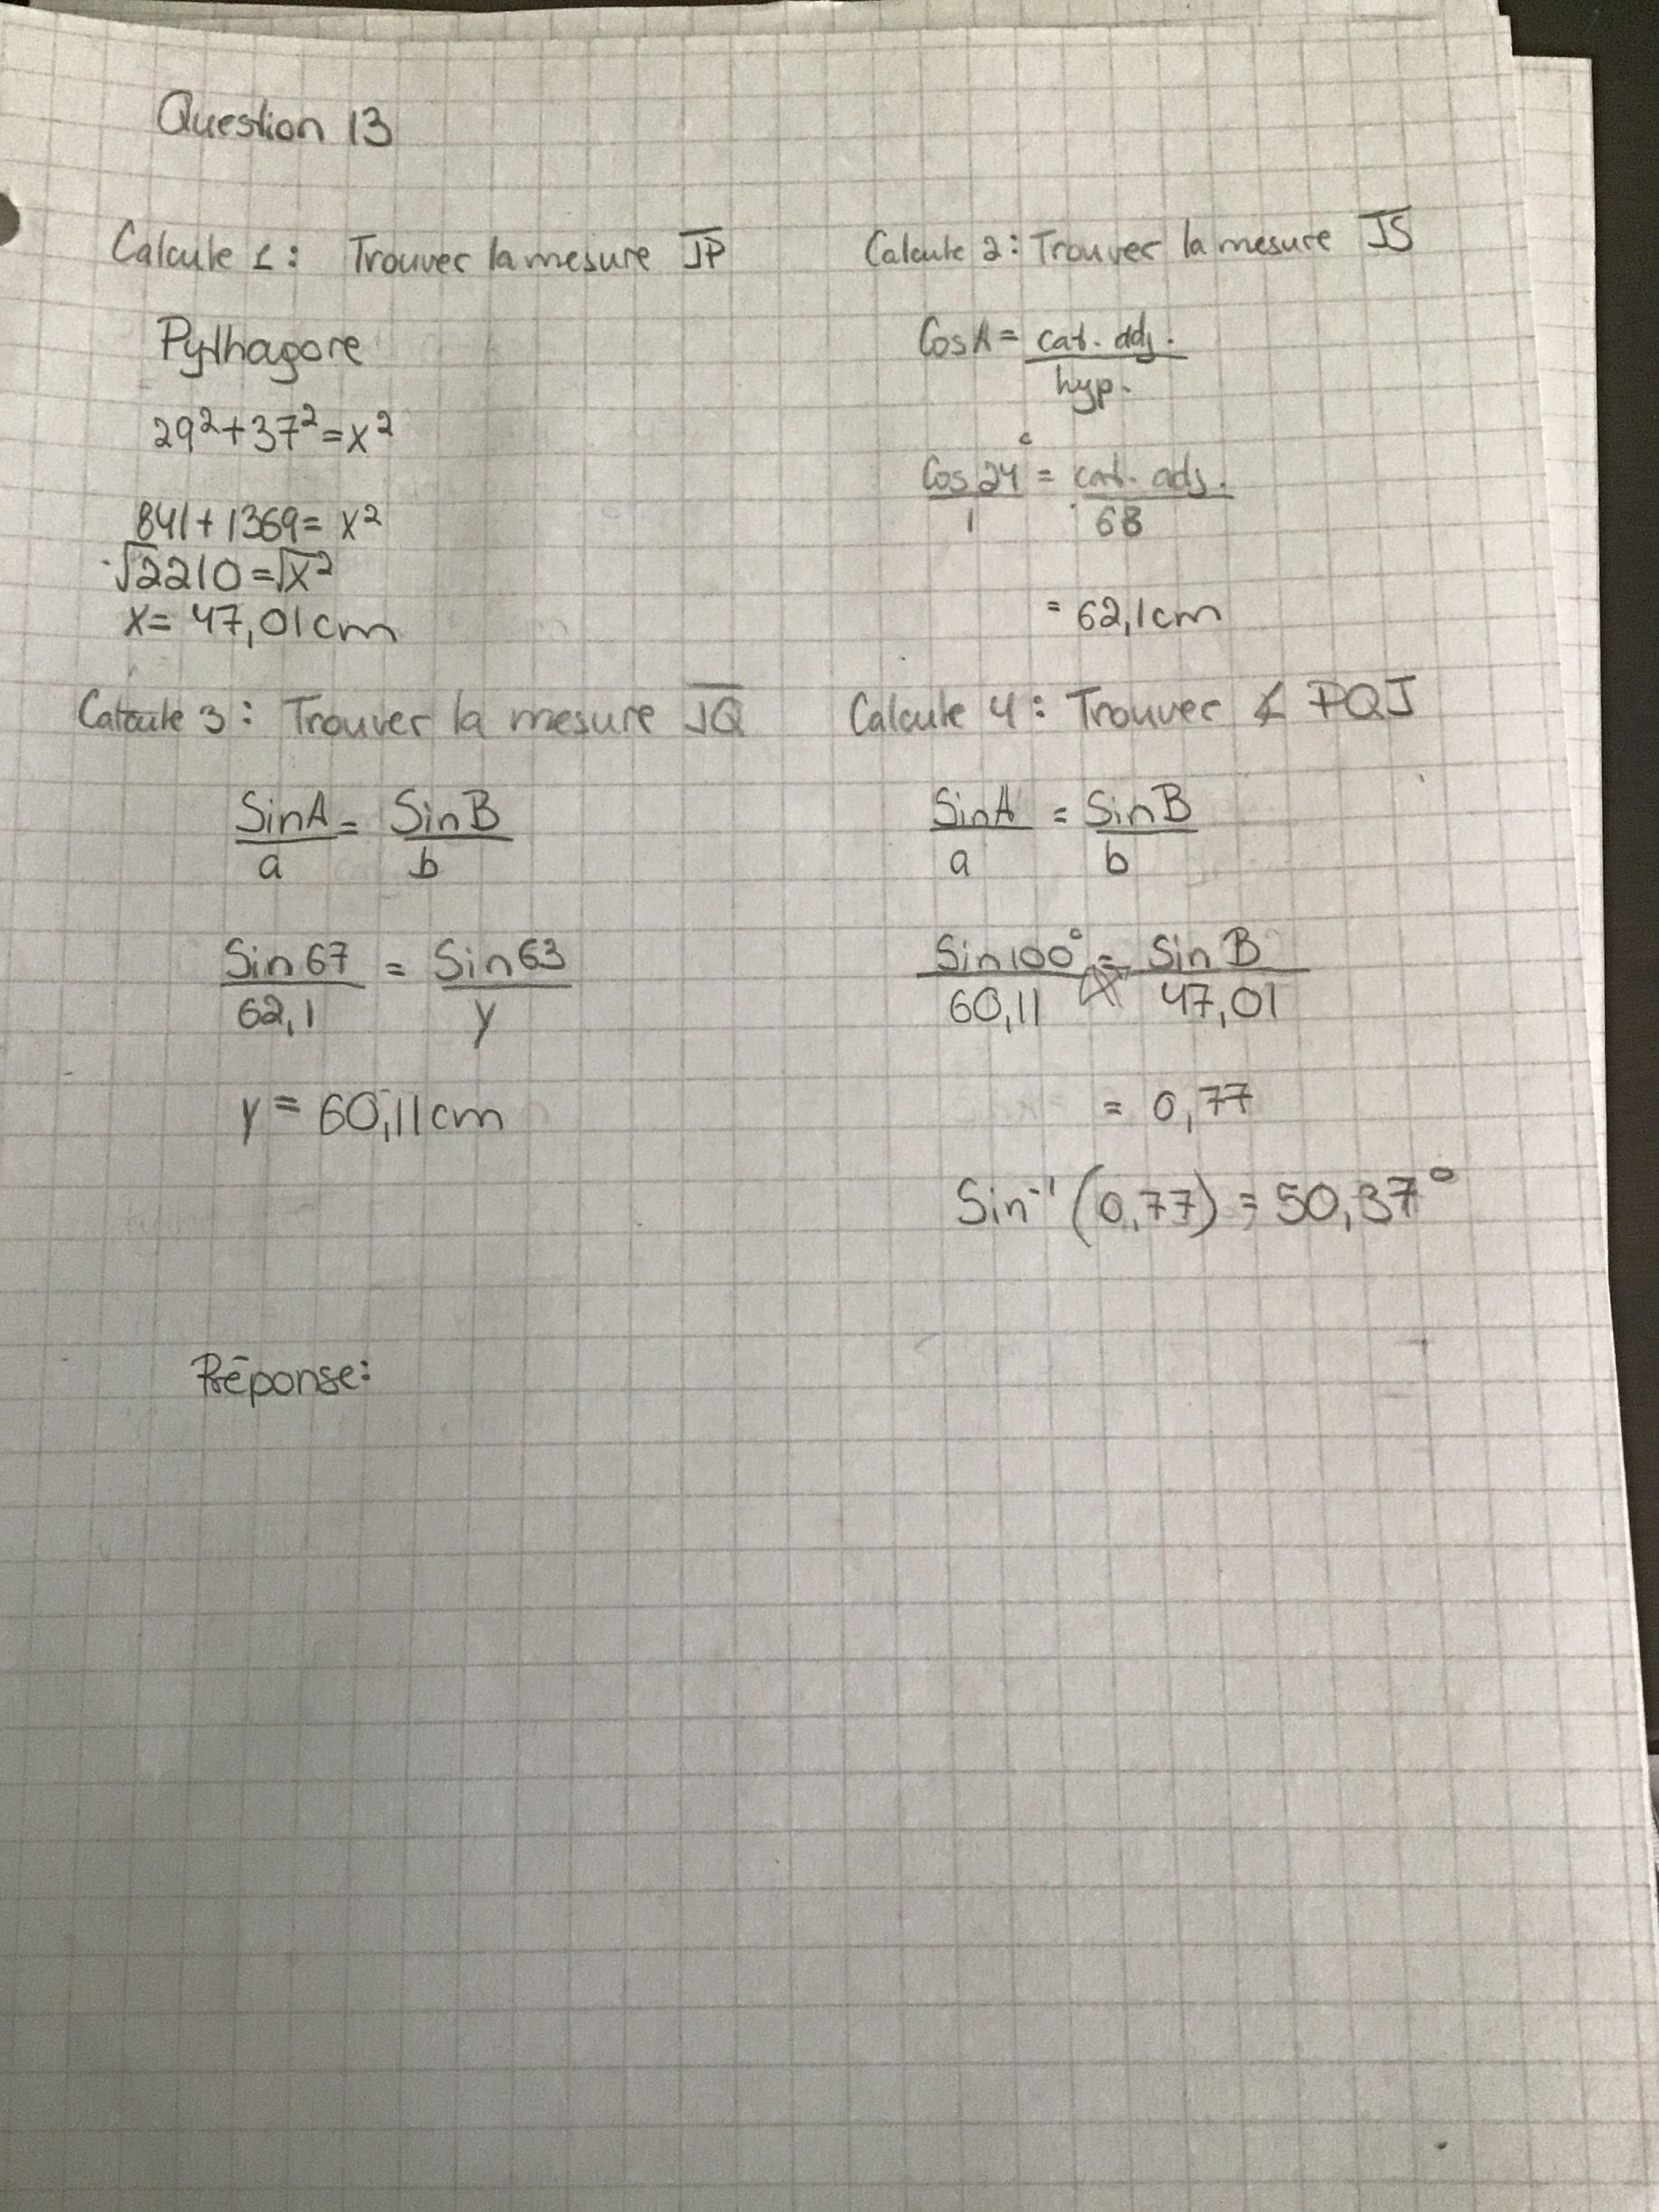 Question 13
Calcule 1: Trouver la mesure J̅P̅
Pythagore
29²+37²=x²
841+1369=x²
√2210=√x²
x= 47,01cm
Calcule 2: Trouver la mesure J̅S̅
Cos A = cat. adj.
hyp.
Cos 24° = cat. adj.
1 68
= 62,1cm
Calcule 3: Trouver la mesure J̅Q̅
Sin A = Sin B
a b
Sin 67 = Sin 63
62,1 y
y = 60,11cm
Calcule 4: Trouver ∡ PQJ
Sin A = Sin B
a b
Sin 100° = Sin B
60,11 47,01
= 0,77
Sin⁻¹ (0,77) = 50,37°
Réponse: